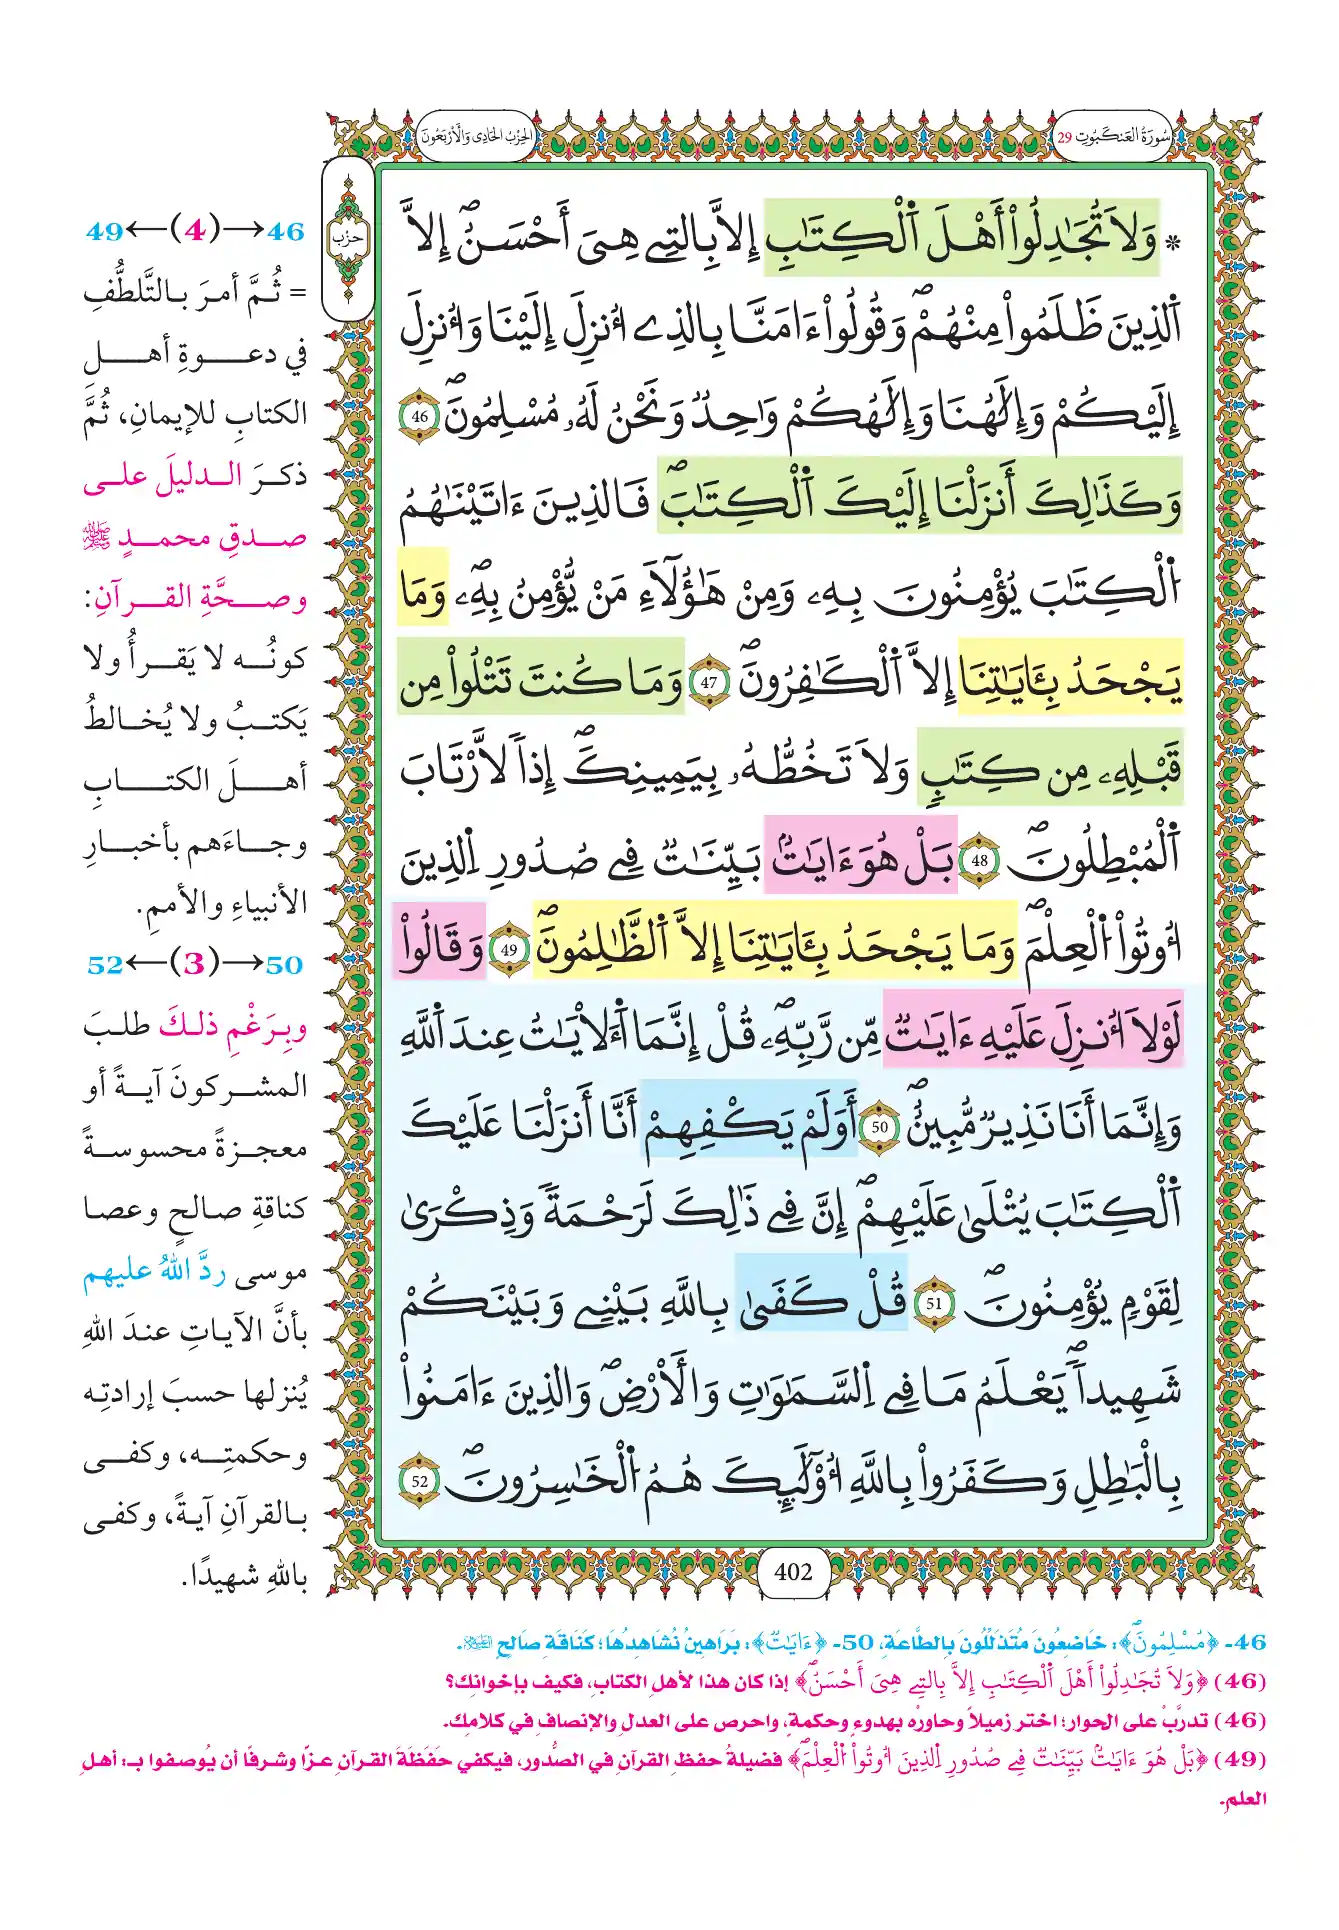 سُورَةُ العَنكَبُوتِ 29
الحِزْبُ الحَادِي وَالأَرْبَعُونَ
حزب
* وَلَا تُجَٰدِلُوٓاْ أَهْلَ اَ۬لْكِتَٰبِ إِلَّا بِالتِے هِيَ أَحْسَنُۖ إِلَّا
اَ۬لذِينَ ظَلَمُواْ مِنْهُمْۖ وَقُولُوٓاْ ءَامَنَّا بِالذِےٓ أُنزِلَ إِلَيْنَا وَأُنزِلَ
إِلَيْكُمْ وَإِلَٰهُنَا وَإِلَٰهُكُمْ وَٰحِدٞ وَنَحْنُ لَهُۥ مُسْلِمُونَۖ 46
وَكَذَٰلِكَ أَنزَلْنَآ إِلَيْكَ اَ۬لْكِتَٰبَۖ فَالذِينَ ءَاتَيْنَٰهُمُ
اُ۬لْكِتَٰبَ يُؤْمِنُونَ بِهِۦ وَمِنْ هَٰٓؤُلَآءِ مَنْ يُّؤْمِنُ بِهِۦۖ وَمَا
يَجْحَدُ بِـَٔايَٰتِنَآ إِلَّا اَ۬لْكَٰفِرُونَۖ 47 وَمَا كُنتَ تَتْلُواْ مِن
قَبْلِهِۦ مِن كِتَٰبٖ وَلَا تَخُطُّهُۥ بِيَمِينِكَۖ إِذاٗ لَّارْتَابَ
اَ۬لْمُبْطِلُونَۖ 48 بَلْ هُوَ ءَايَٰتُۢ بَيِّنَٰتٞ فِے صُدُورِ اِ۬لذِينَ
أُوتُواْ اُ۬لْعِلْمَۖ وَمَا يَجْحَدُ بِـَٔايَٰتِنَآ إِلَّا اَ۬لظَّٰلِمُونَۖ 49 وَقَالُواْ
لَوْلَآ أُنزِلَ عَلَيْهِ ءَايَٰتٞ مِّن رَّبِّهِۦۖ قُلْ إِنَّمَا اَ۬لْأٓيَٰتُ عِندَ اَ۬للَّهِ
وَإِنَّمَآ أَنَا نَذِيرٞ مُّبِينٌۖ 50 أَوَلَمْ يَكْفِهِمْ أَنَّآ أَنزَلْنَا عَلَيْكَ
اَ۬لْكِتَٰبَ يُتْلَىٰ عَلَيْهِمْۖ إِنَّ فِے ذَٰلِكَ لَرَحْمَةٗ وَذِكْرَىٰ
لِقَوْمٖ يُؤْمِنُونَۖ 51 قُلْ كَفَىٰ بِاللَّهِ بَيْنِے وَبَيْنَكُمْ
شَهِيداٗۖ يَعْلَمُ مَا فِے اِ۬لسَّمَٰوَٰتِ وَالْأَرْضِۖ وَالذِينَ ءَامَنُواْ
بِالْبَٰطِلِ وَكَفَرُواْ بِاللَّهِ أُوْلَٰٓئِكَ هُمُ اُ۬لْخَٰسِرُونَۖ 52
402
46→(4)←49
= ثُمَّ أمرَ بالتَّلطُّفِ
في دعوةِ أهلِ
الكتابِ للإيمانِ، ثُمَّ
ذكرَ الدليلَ على
صدقِ محمدٍ ﷺ
وصحَّةِ القرآنِ:
كونُه لا يَقرأُ ولا
يَكتبُ ولا يُخالطُ
أهلَ الكتابِ
وجاءَهم بأخبارِ
الأنبياءِ والأممِ.
50→(3)←52
وبِرَغْمِ ذلكَ طلبَ
المشركونَ آيةً أو
معجزةً محسوسةً
كناقةِ صالحٍ وعصا
موسى ردَّ اللهُ عليهم
بأنَّ الآياتِ عندَ اللهِ
يُنزلها حسبَ إرادتِه
وحكمتِه، وكفى
بالقرآنِ آيةً، وكفى
باللهِ شهيدًا.
46- ﴿مُسْلِمُونَۖ﴾: خَاضِعُونَ مُتَذَلِّلُونَ بِالطَّاعَةِ، 50- ﴿ءَايَٰتٞ﴾: بَرَاهِينُ نُشَاهِدُهَا؛ كَنَاقَةِ صَالِحٍ عليه السلام.
(46) ﴿وَلَا تُجَٰدِلُوٓاْ أَهْلَ اَ۬لْكِتَٰبِ إِلَّا بِالتِے هِيَ أَحْسَنُۖ﴾ إذا كان هذا لأهلِ الكتابِ، فكيف بإخوانِك؟
(46) تدرَّبْ على الحوار؛ اختر زميلاً وحاورْه بهدوءٍ وحكمةٍ، واحرص على العدلِ والإنصافِ في كلامِك.
(49) ﴿بَلْ هُوَ ءَايَٰتُۢ بَيِّنَٰتٞ فِے صُدُورِ اِ۬لذِينَ أُوتُواْ اُ۬لْعِلْمَۖ﴾ فضيلةُ حفظِ القرآنِ في الصُّدور، فيكفي حَفَظَةَ القرآنِ عزًّا وشرفًا أن يُوصفوا بـ: أهلِ
العلمِ.